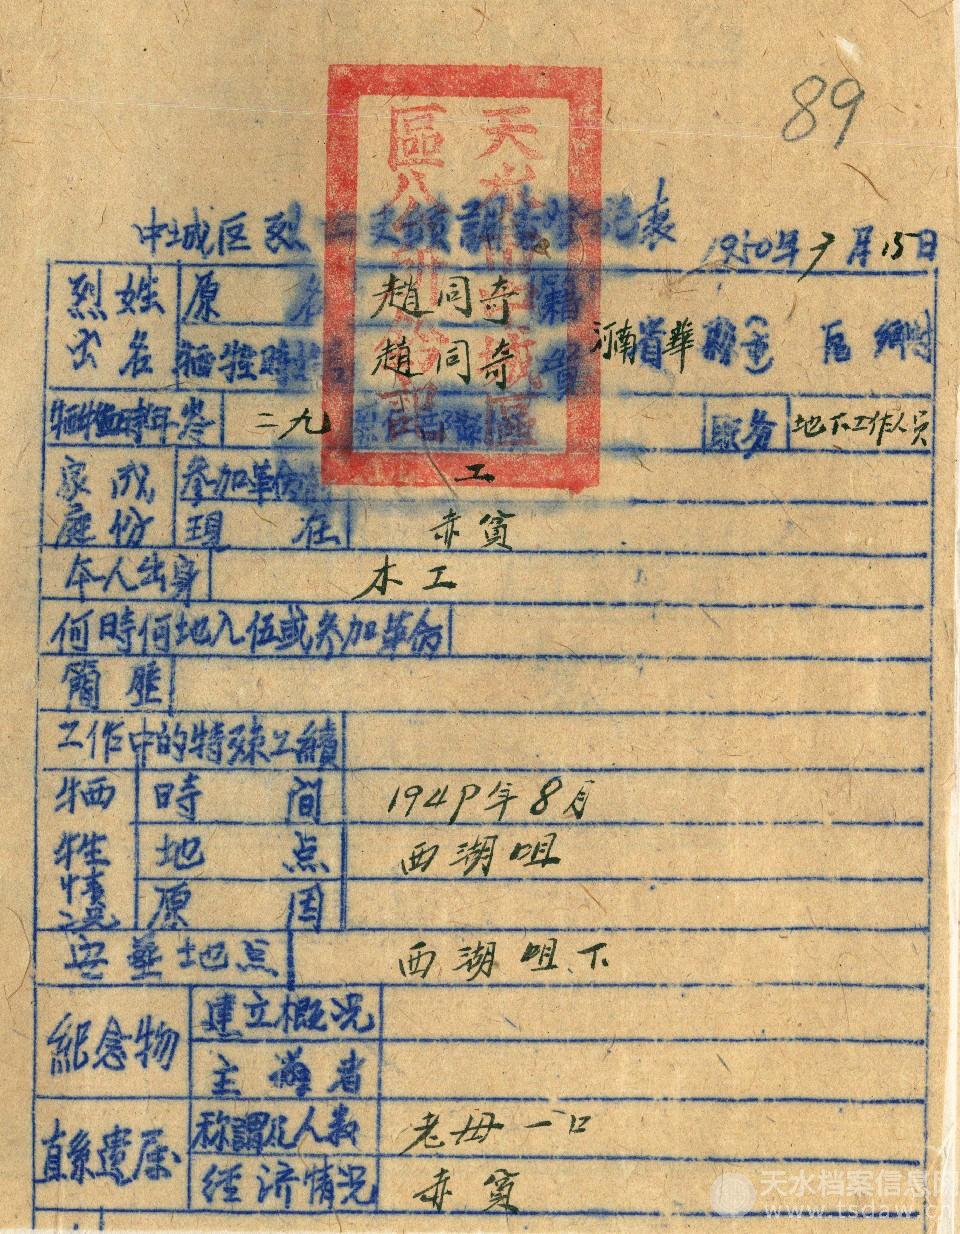 89
中城区烈士史績調查登記表 1950年7月15日
烈士姓名 原名 趙同奇 籍貫 河南省華縣 区 鄉
牺牲時 趙同奇
牺牲時年岺 二九 职务 地下工作人員
家庭成份 参加革命 工
現在 赤貧
本人出身 木工
何時何地入伍或参加革命
簡歷
工作中的特殊工績
牺牲情况 時間 1949年8月
地点 西湖咀
原因
安葬地点 西湖咀下
紀念物 建立概况
主導者
直系遺属 称謂及人数 老母一口
經济情况 赤貧
天水档案信息网
www.tsdaw.cn